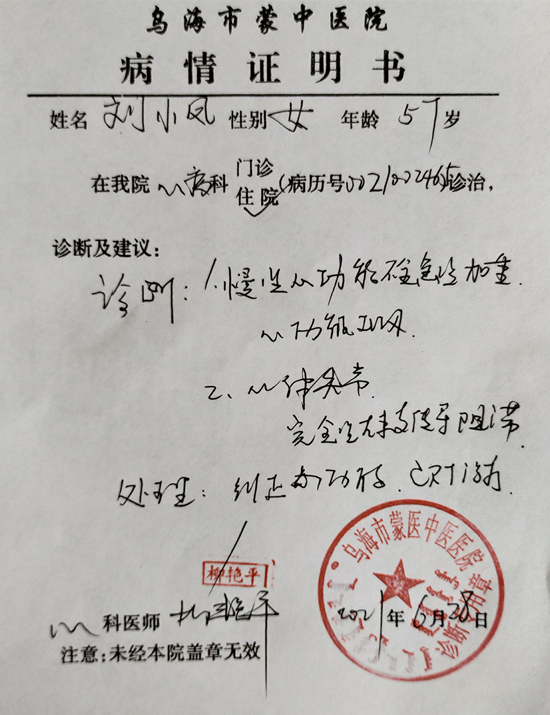 乌海市蒙中医院
病情证明书
姓名 刘小凤 性别 女 年龄 57 岁
门诊
在我院 心病科 住院 (病历号0021002465)诊治,
诊断及建议:
诊断: 1.慢性心功能不全急性加重
心功能IV级
2、心律失常
完全性左束支传导阻滞
处理: 纠正心功能、对治
柳艳平
心 科医师 柳艳平
2021年6月28日
注意:未经本院盖章无效
乌海市蒙医中医医院
诊断专用章